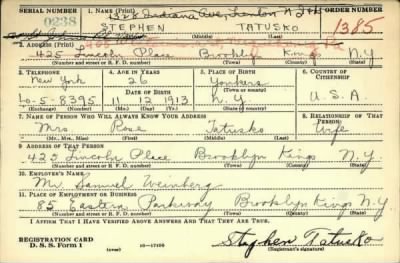 SERIAL NUMBER 1. NAME (Print) ORDER NUMBER
0238 Indiana Ave 1385
STEPHEN TATUSKO
(First) (Middle) (Last)
2. ADDRESS (Print)
425 Lincoln Place Brooklyn Kings N.Y
(Number and street or R. F. D. number) (Town) (County) (State)
3. TELEPHONE 4. AGE IN YEARS 5. PLACE OF BIRTH 6. COUNTRY OF CITIZENSHIP
New York 26 Yonkers
DATE OF BIRTH (Town or county)
5-8395 11 12 1913 N.Y U.S.A.
(Exchange) (Number) (Mo.) (Day) (Yr.) (State or country)
7. NAME OF PERSON WHO WILL ALWAYS KNOW YOUR ADDRESS 8. RELATIONSHIP OF THAT PERSON
Mrs Rose Tatusko Wife
(Mr., Mrs., Miss) (First) (Middle) (Last)
9. ADDRESS OF THAT PERSON
425 Lincoln Place Brooklyn Kings N.Y
(Number and street or R. F. D. number) (Town) (County) (State)
10. EMPLOYER'S NAME
Mr. Samuel Weinberg
11. PLACE OF EMPLOYMENT OR BUSINESS
85 Eastern Parkway Brooklyn Kings N.Y
(Number and street or R. F. D. number) (Town) (County) (State)
I AFFIRM THAT I HAVE VERIFIED ABOVE ANSWERS AND THAT THEY ARE TRUE.
REGISTRATION CARD
D. S. S. Form 1 (over) 16-17105 Stephen Tatusko
(Registrant's signature)